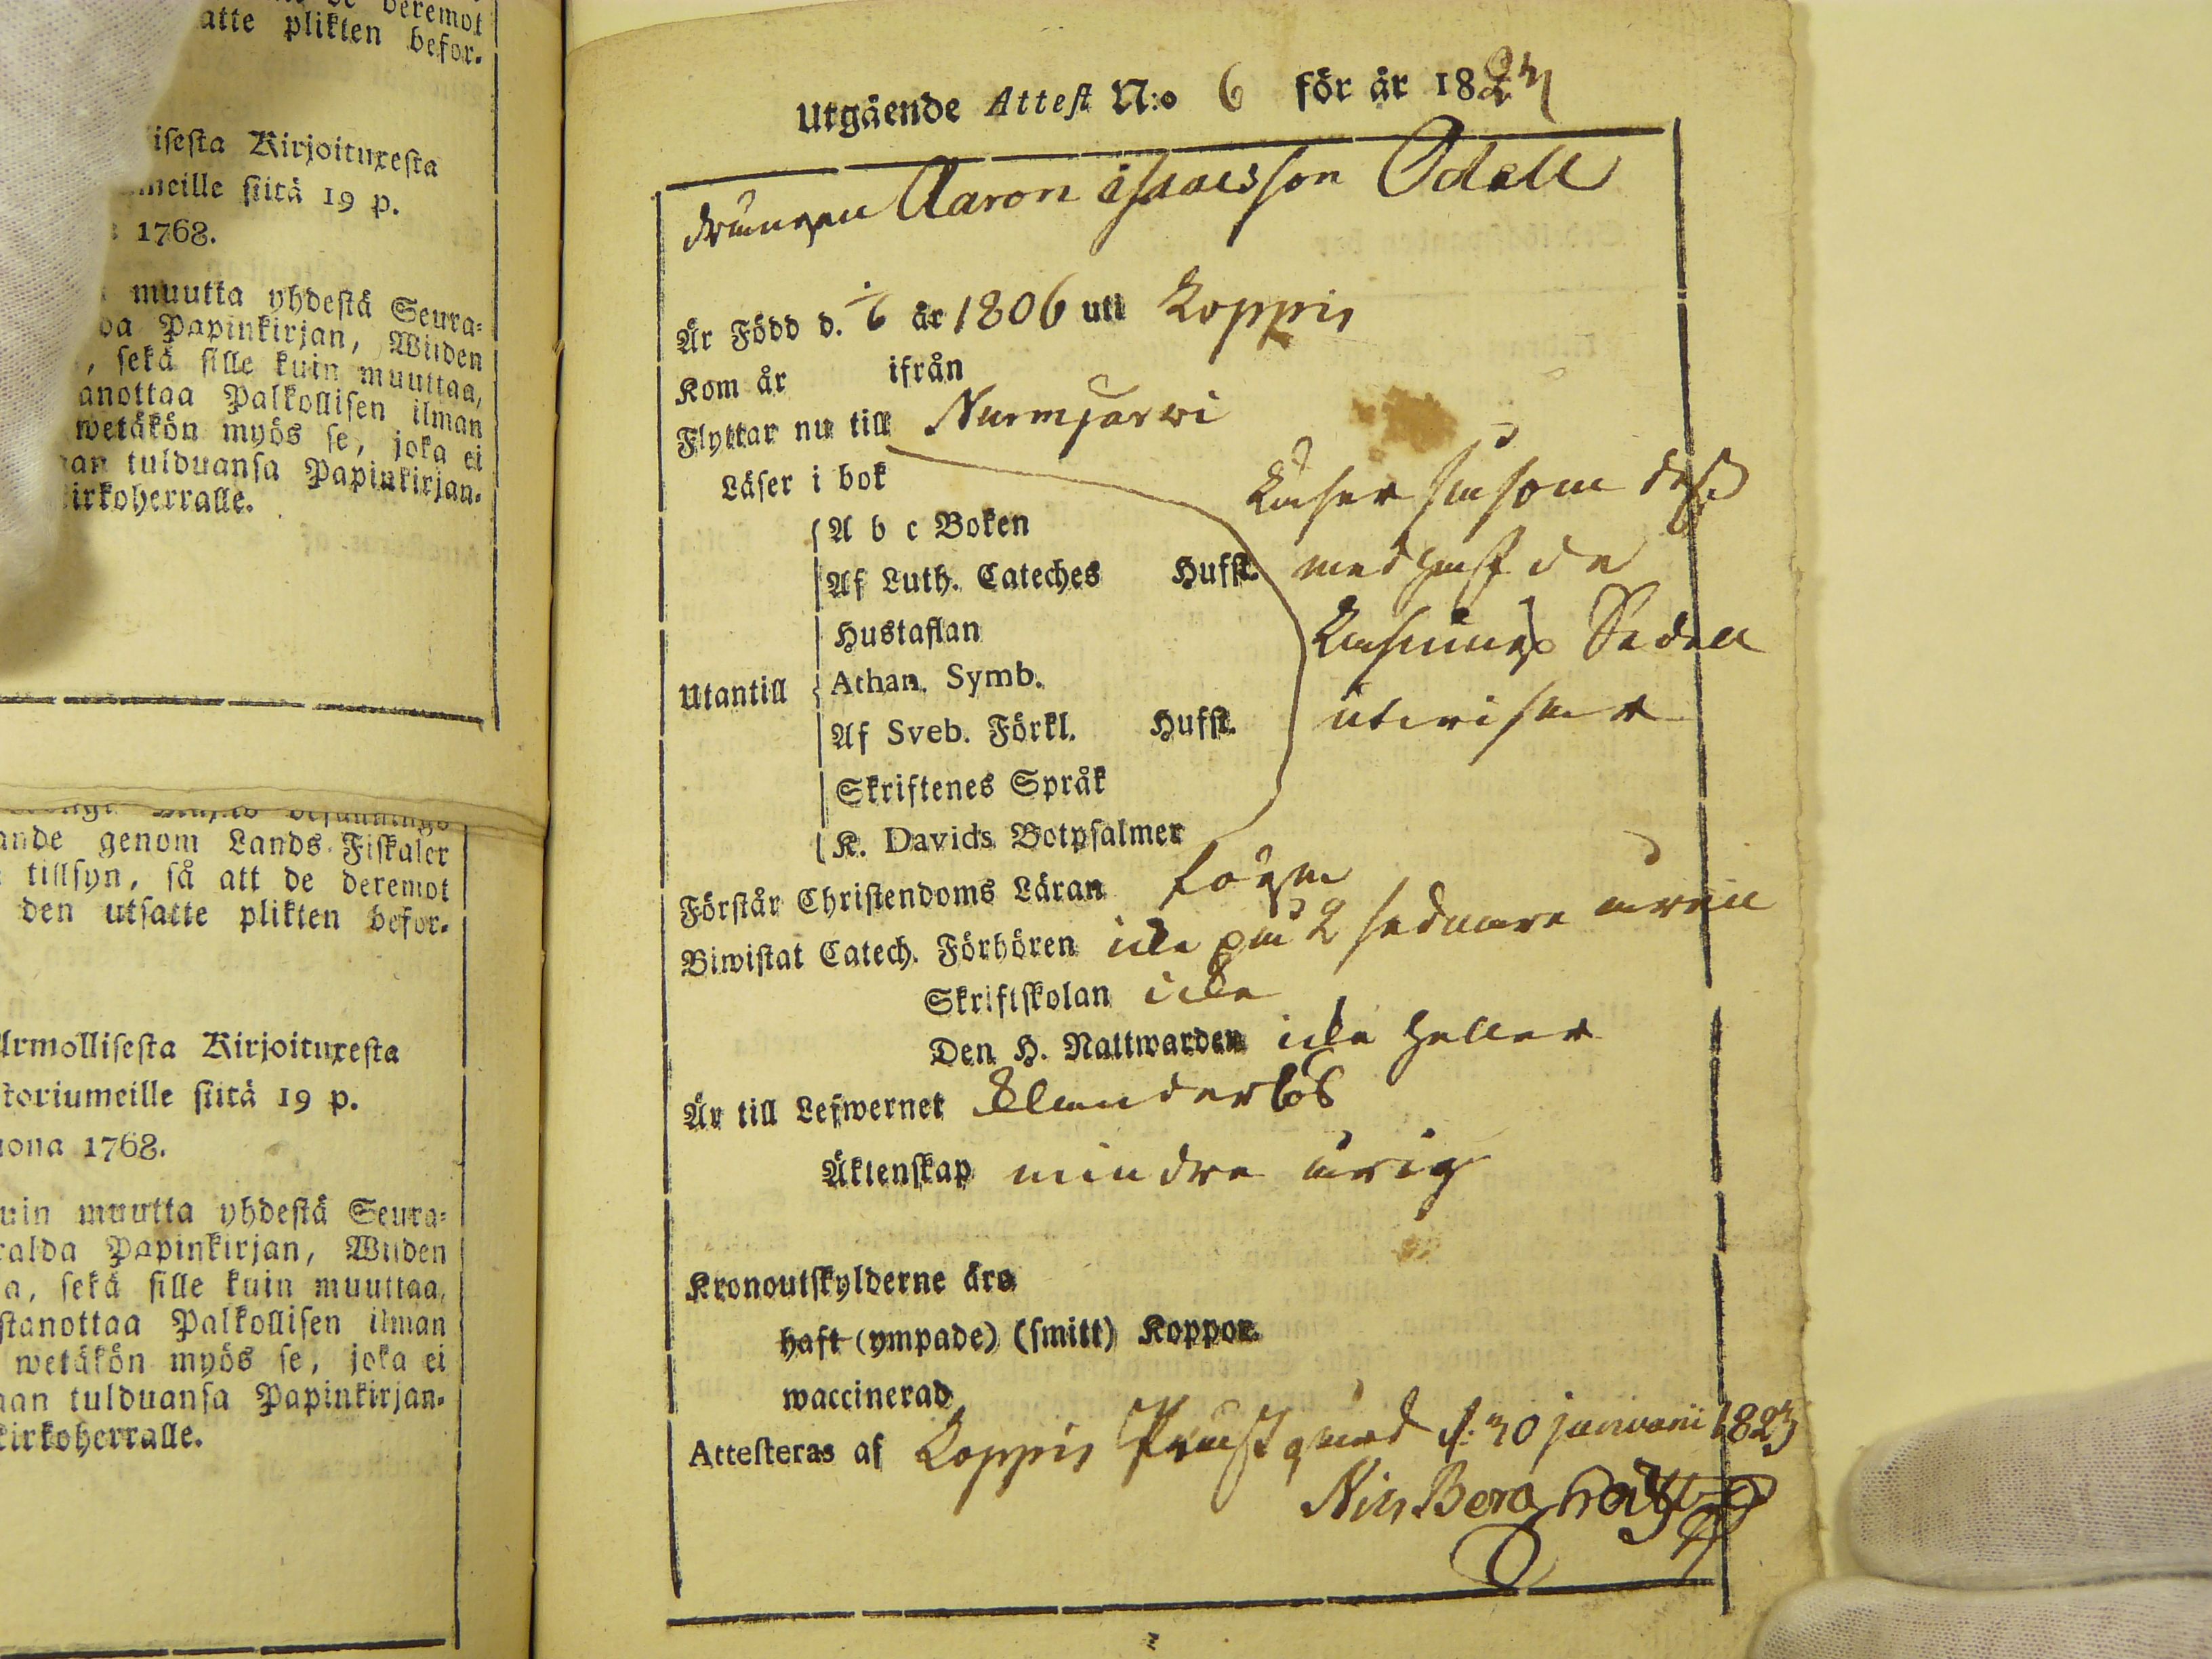 deremot
atte plikten befor-
isesta Kirjoituxesta
meille siitä 19 p.
1768.
muutta yhdestä Seura-
da Papinkirjan, Wiiden
, sekä sille kuin muuttaa,
anottaa Palkollisen ilman
wetäkön myös se, joka ei
an tulduansa Papinkirjan-
irkoherralle.
ande genom Lands-Fiskaler
tillsyn, så att de deremot
den utsatte plikten befor-
Armollisesta Kirjoituxesta
storiumeille siitä 19 p.
uona 1768.
uin muutta yhdestä Seura-
ralda Papinkirjan, Wiiden
a, sekä sille kuin muuttaa,
stanottaa Palkollisen ilman
wetäkön myös se, joka ei
aan tulduansa Papinkirjan-
kirkoherralle.
Utgående Attest N:o 6 för år 1823
drängen Aaron Isaacsson Odell
Är Född d. 6 år 1806 uti Koppis
Kom år ifrån
Flyttar nu till Nurmjärwi
Läser i bok
Läser såsom dess
A b c Boken
Af Luth. Cateches Hufst. medhafde
Hustaflan Läsnings Sedell
Utantill Athan. Symb.
Af Sveb. Förkl. Hufst. utwisar
Skriftenes Språk
K. Davids Botpsalmer
Förstår Christendoms Läran
Biwistat Catech. Förhören icke på 2 sednare åren
Skriftskolan icke
Den H. Nattwarden icke heller
Är till Lefwernet klanderlös
Äktenskap mindre årig
Kronoutskylderne äro
haft (ympade) (smitt) Koppor.
waccinerad
Attesteras af Koppis Prästgård d. 30 januarii 1823